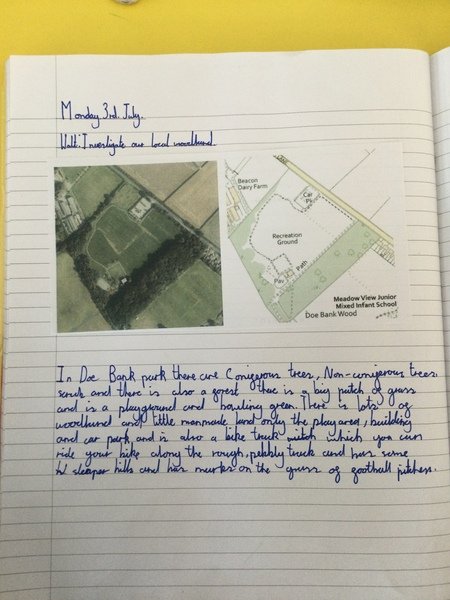 Monday 3rd July.
Walt: Investigate our local woodland.
Beacon
Dairy Farm
Car
Pk
Recreation
Ground
Path
Pav
Meadow View Junior
Mixed Infant School
Doe Bank Wood
In Doe Bank park there are Conigerous trees, Non-conigerous trees,
scrub and there is also a forest thre is a big patch of grass
and is a playground and bowling green. There is lots of
woodland and little manmade land only the playarea, building
and car park and is also a bike track witch which you can
ride your bike along the rough, pebbly track and has some
steeper hills and has marks on the grass of football pitches.